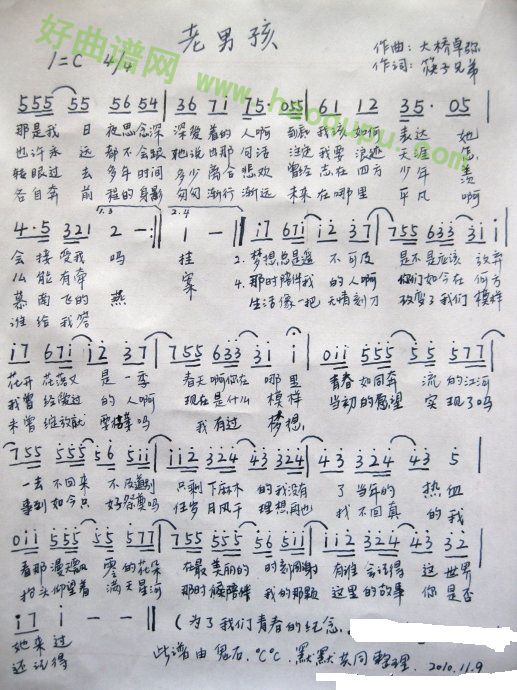 老男孩
好曲谱网
www.haoqupu.com
1=C 4/4
作曲:大桥卓弥
作词:筷子兄弟
555 55 56 54 | 36 71 75· 055 | 61 12 35· 05 |
那是我 日 夜思念深 深爱着的 人啊 到底 我该如何 表达 她
也许永 远 都不会跟 她说出那 句话 注定 我要浪迹 天涯 怎
转眼过 去 多年时间 多少离合 悲欢 曾经 志在四方 少年 羡
各自奔 前 程的身影 匆匆渐行 渐远 未来 在哪里 平凡 啊
1.3 2.4
4·5 321 2 - :| 1 - | i7 67i i2 37 | 755 633 3i i |
会接受我 吗 挂 2. 梦想总是遥 不可及 是不是应该 放弃
么能有牵 案 4. 那时陪伴我 的人啊 你们如今在 何方
慕南飞的 燕 生活像一把 无情刻刀 改变了我们 模样
谁给我答
i7 67i i2 37 | 755 633 3i i | 0ii 555 55 577 |
花开花落又 是一季 春天啊你在 哪里 青春如同奔 流的江河
我曾经爱过 的人啊 现在是什么 模样 当初的愿望 实现了吗
未曾绽放就 要枯萎吗 我有过 梦想
755 555 56 5i | ii2 324 43 324 | 43 324 43 5 |
一去不回来 不及道别 只剩下麻木 的我没有 了当年的 热血
事到如今只 好祭奠吗 任岁月风干 理想再也 找不回真 的我
0ii 555 55 577 | 755 555 56 5ii | ii2 324 43 32 |
看那漫天飘 零的花朵 在最美丽的 时刻凋谢 有谁会记得 这世界
抬头仰望着 满天星河 那时候陪伴 我的那颗 这里的故事 你是否
i7 i - - |
她来过
还记得
(为了我们青春的纪念.
此谱由 鬼石.℃℃.默默 共同整理. 2010.11.9